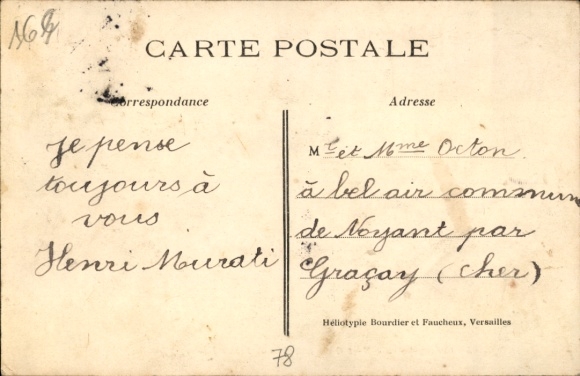 CARTE POSTALE
Correspondance
Adresse
je pense
toujours à
vous
Henri Murati
Mr et Mme Octon
à bel air commun
de Noyant par
Graçay (Cher)
Héliotypie Bourdier et Faucheux, Versailles
78